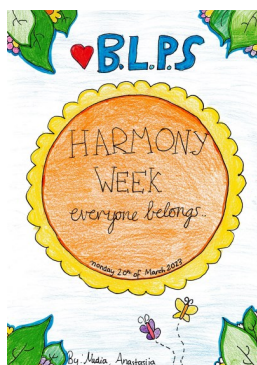 B.L.P.S
HARMONY
WEEK
everyone belongs..
monday 20th of March 2023
By: Nadia, Anastasiia